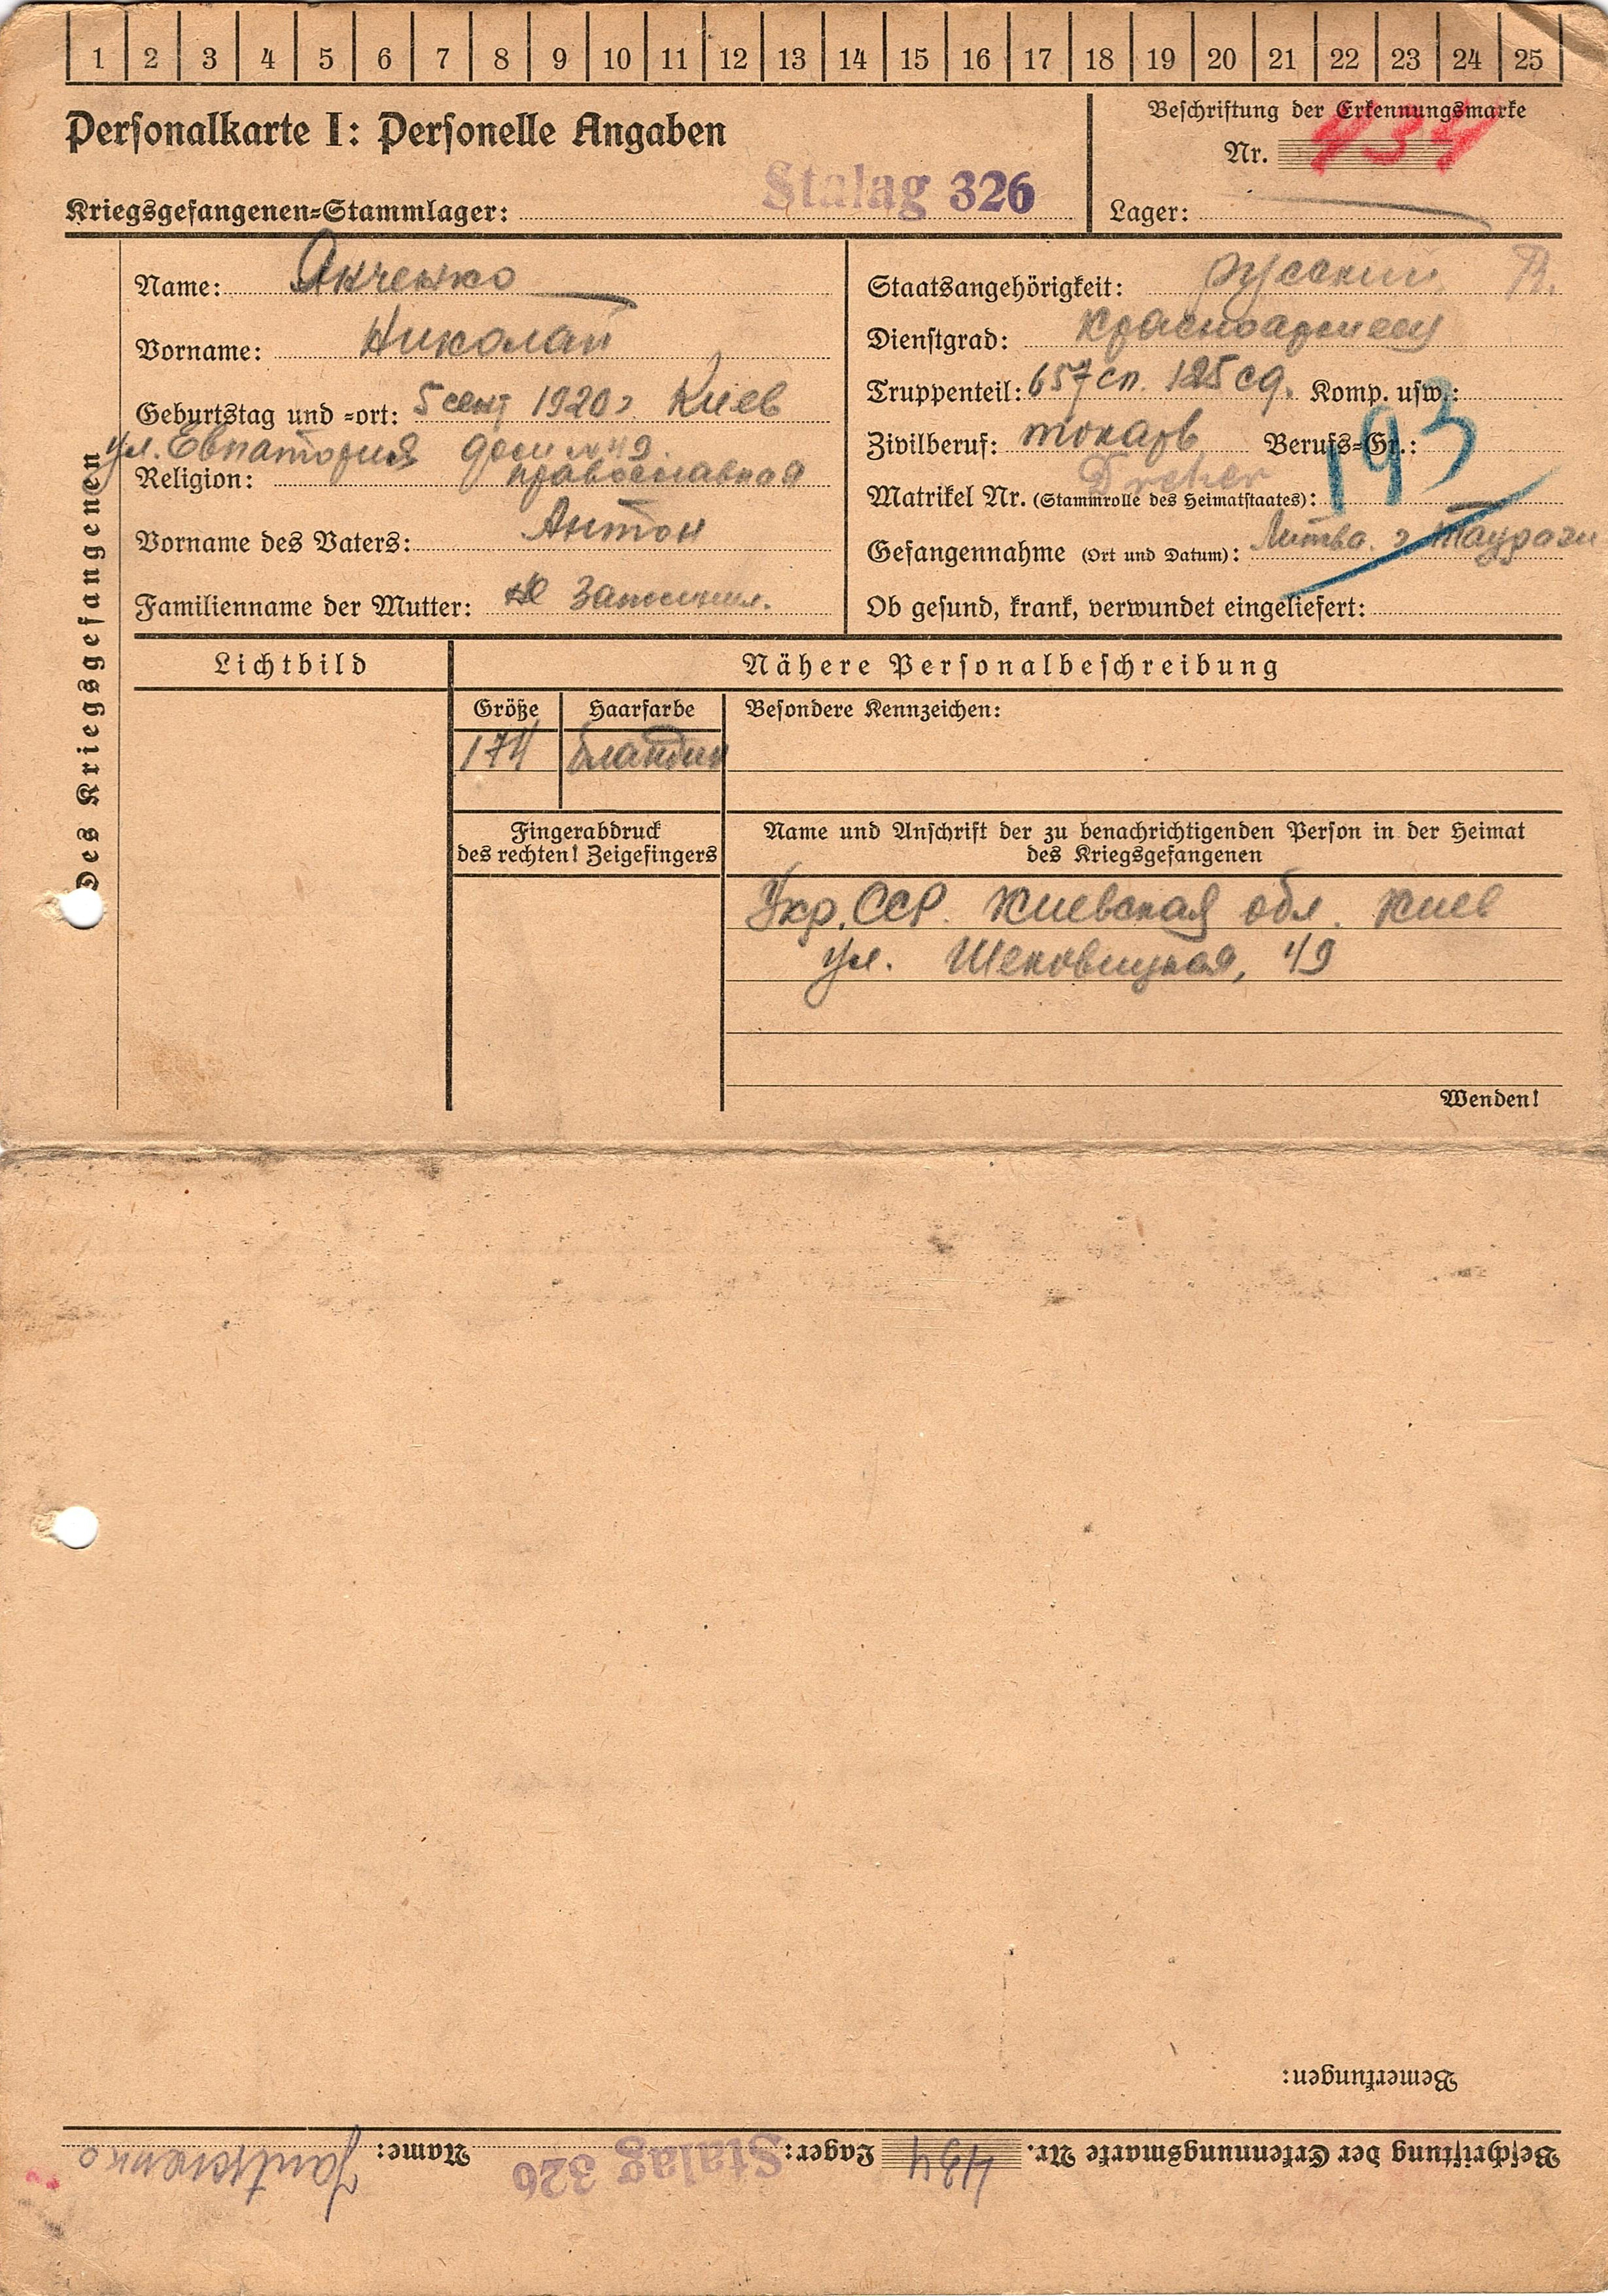 1 2 3 4 5 6 7 8 9 10 11 12 13 14 15 16 17 18 19 20 21 22 23 24 25
Personalkarte I: Personelle Angaben
Kriegsgefangenen-Stammlager: Stalag 326
Beschriftung der Erkennungsmarke
Nr. 434
Lager:
Des Kriegsgefangenen
Name: Янченко
Vorname: Николай
Geburtstag und -ort: 5 сент 1920г Киев
ул. Евпатория дом №49.
Religion: православная
Vorname des Vaters: Антон
Familienname der Mutter:
Staatsangehörigkeit: русский R.
Dienstgrad: Красноармеец
Truppenteil: 657 сп. 125 сд. Komp. usw.:
Zivilberuf: токарь Berufs-Gr.: 193
Dreher
Matrikel Nr. (Stammrolle des Heimatstaates):
Gefangennahme (Ort und Datum): Литва. г Таураги
Ob gesund, krank, verwundet eingeliefert:
Lichtbild
Nähere Personalbeschreibung
Größe Haarfarbe Besondere Kennzeichen:
174 блондин
Fingerabdruck
des rechten! Zeigefingers
Name und Anschrift der zu benachrichtigenden Person in der Heimat
des Kriegsgefangenen
Укр. ССР. Киевская обл. Киев
ул. Щековицкая, 49
Wenden!
Bemerkungen:
Beschriftung der Erkennungsmarke Nr. 434 Lager: Stalag 326 Name: Jantschenko